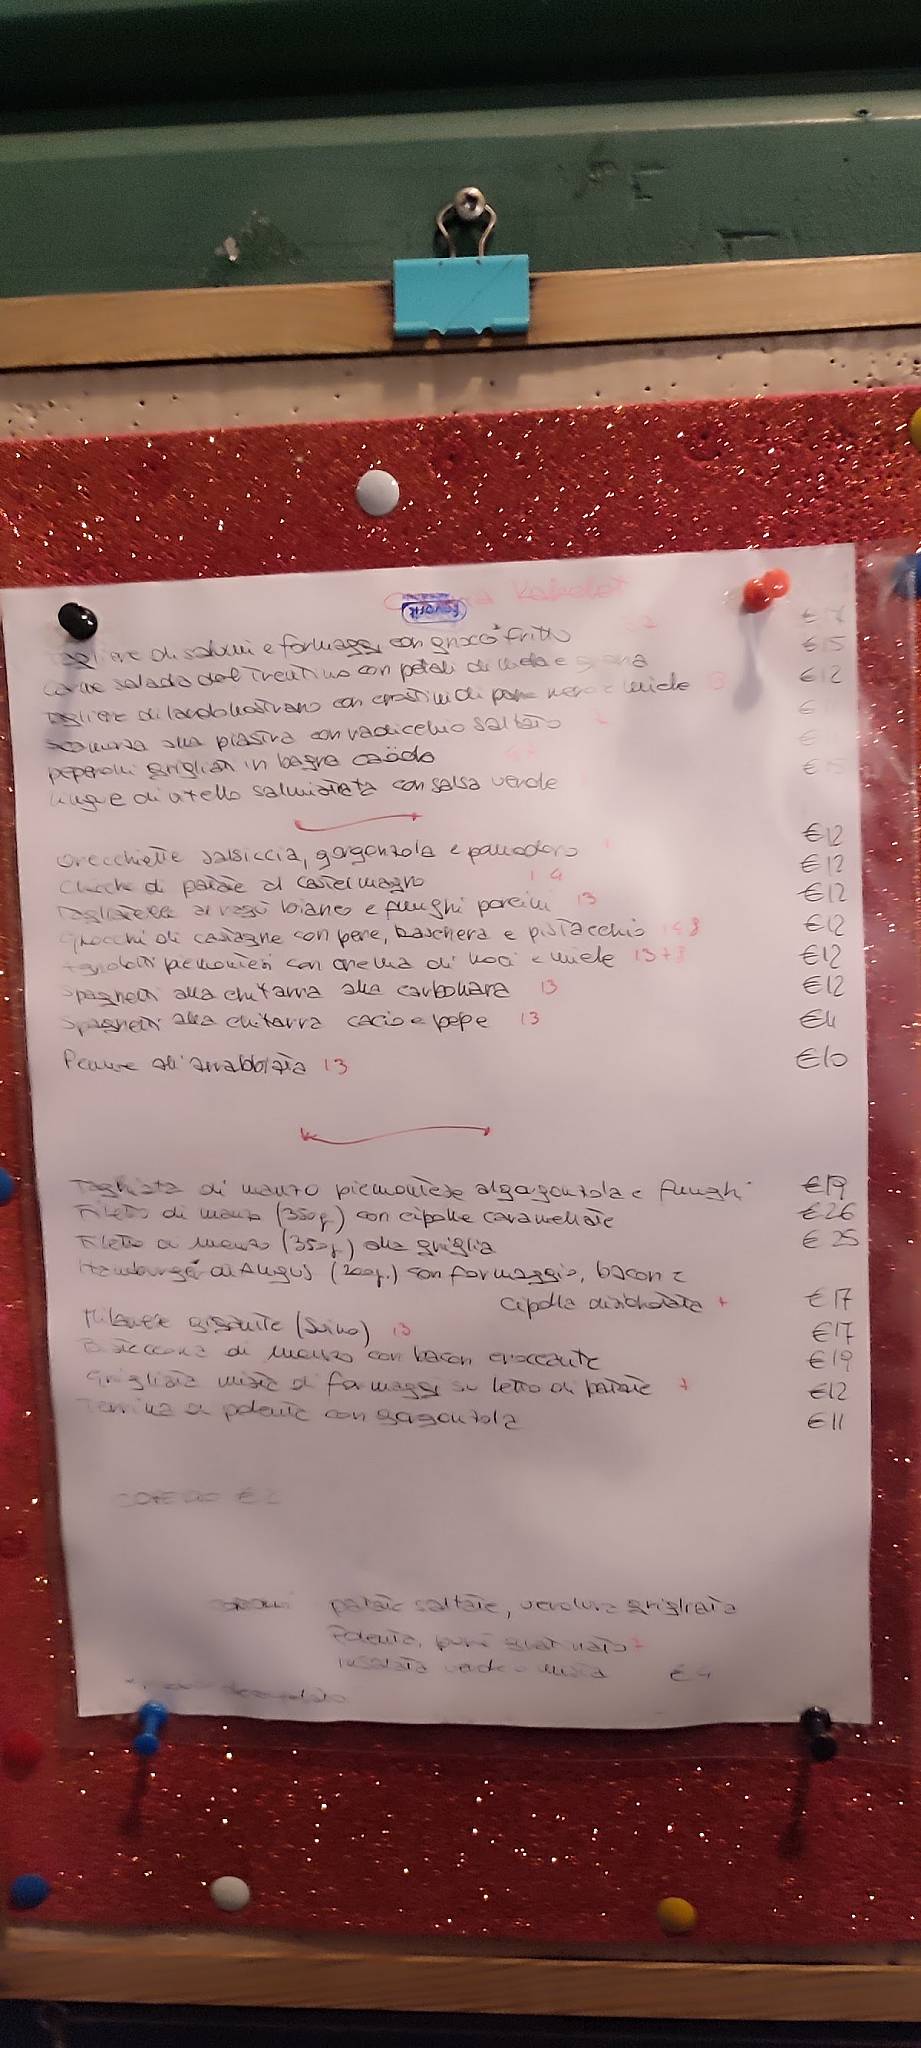 Tagliere di salumi e formaggi con gnocco fritto
Carne salada del Trentino con petali di mela e grana €15
Tagliere di lardo nostrano con crostini di pane nero e miele €12
Scamorza alla piastra con radicchio saltato
peperoni grigliati in bagna caoda
lingue di vitello salmistrata con salsa verde €15
Orecchiette salsiccia, gorgonzola e pomodoro €12
Chicche di patate al castelmagno €12
Tagliatelle al ragù bianco e funghi porcini 13 €12
Gnocchi di castagne con pere, e pistacchio €12
Agnolotti piemontesi con crema di noci e miele €12
Spaghetti alla chitarra alla carbonara 13 €12
Spaghetti alla chitarra cacio e pepe 13
Penne all'arrabbiata 13 €10
Tagliata di manzo piemontese al gorgonzola e funghi €19
Filetto di manzo (350g.) con cipolle caramellate €26
Filetto di manzo (350g.) alla griglia €25
Hamburger di Angus (200g.) con formaggio, bacon e
cipolla €17
Milanese gigante (Suino) 13 €17
Bisteccona di manzo con bacon croccante €19
Grigliata mista di formaggi su letto di patate €12
Terrina di polenta con gorgonzola €11
COPERTO €2
patate saltate, verdura grigliata
Polenta, purè
insalata verde o mista €